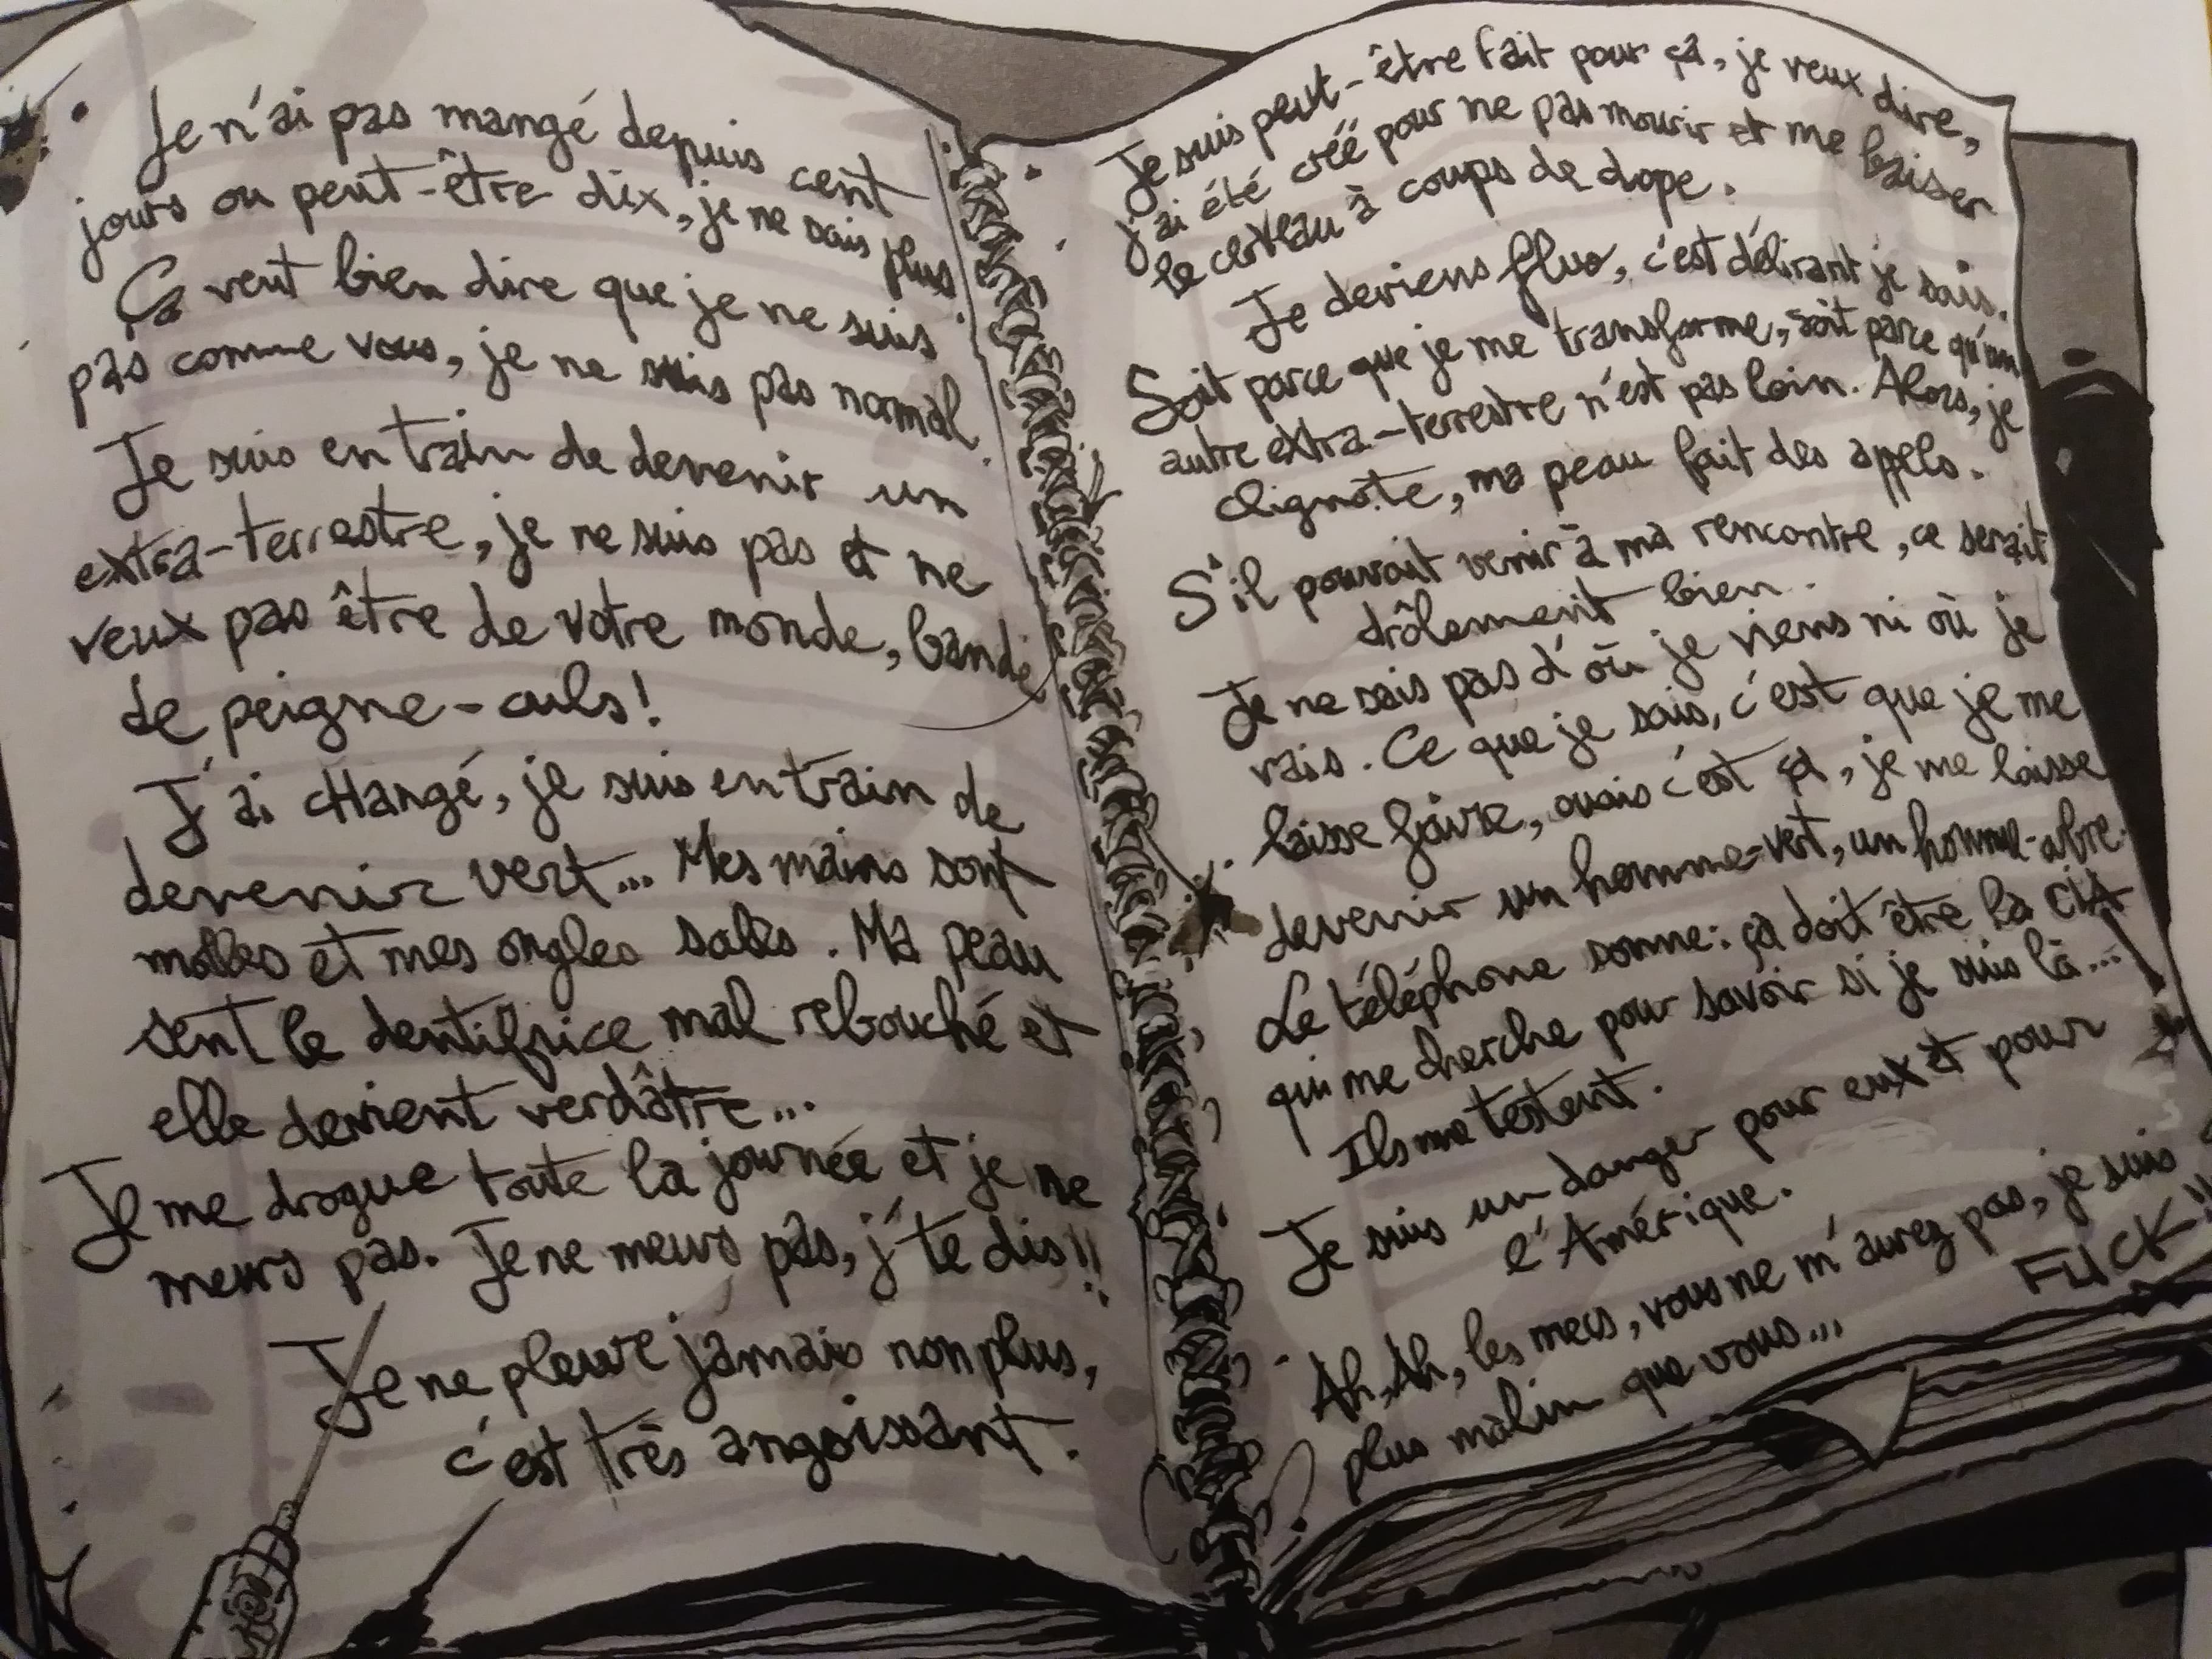 Je n'ai pas mangé depuis cent
jours ou peut-être dix, je ne sais plus.
Ça veut bien dire que je ne suis
pas comme vous, je ne suis pas normal.
Je suis en train de devenir un
extra-terrestre, je ne suis pas et ne
veux pas être de votre monde, bande
de peigne-culs!
J'ai changé, je suis en train de
devenir vert... Mes mains sont
molles et mes ongles sales. Ma peau
sent le dentifrice mal rebouché et
elle devient verdâtre...
Je me drogue toute la journée et je ne
meurs pas. Je ne meurs pas, j'te dis!!
Je ne pleure jamais non plus,
c'est très angoissant.
Je suis peut-être fait pour ça, je veux dire,
j'ai été créé pour ne pas mourir et me baiser
le cerveau à coups de dope.
Je deviens fluo, c'est délirant je sais.
Soit parce que je me transforme, soit parce qu'un
autre extra-terrestre n'est pas loin. Alors, je
clignote, ma peau fait des appels.
S'il pouvait venir à ma rencontre, ce serait
drôlement bien.
Je ne sais pas d'où je viens ni où je
vais. Ce que je sais, c'est que je me
laisse faire, ouais c'est ça, je me laisse
devenir un homme-vert, un homme-arbre.
Le téléphone sonne: ça doit être la CIA
qui me cherche pour savoir si je suis là...
Ils me testent.
Je suis un danger pour eux et pour
l'Amérique.
Ah, Ah, les mecs, vous ne m'aurez pas, je suis
plus malin que vous... FUCK!!